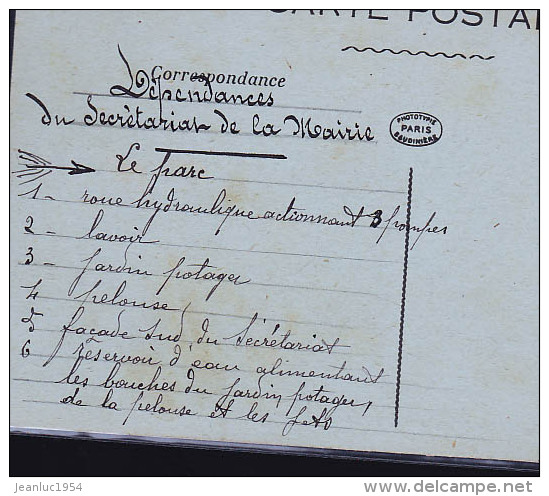 CARTE POSTAL
Correspondance
Dépendances
du Secrétariat de la Mairie
PHOTOTYPIE
PARIS
BAUDINIÈRE
Le parc
1 - roue hydraulique actionnant 3 pompes
2 - lavoir
3 - jardin potager
4 pelouse
5 façade sud du Secrétariat
6 réservoir d'eau alimentant
les bouches du jardin potager,
de la pelouse et les jets
jeanluc1954
delcampe.net